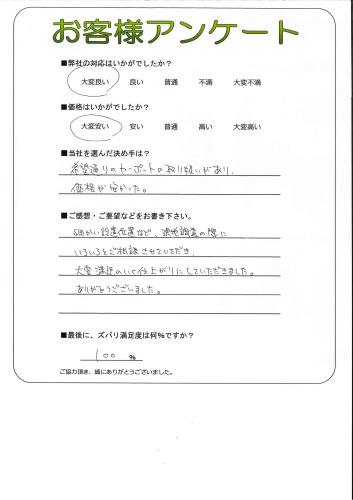 お客様アンケート
■弊社の対応はいかがでしたか?
大変良い 良い 普通 不満 大変不満
■価格はいかがでしたか?
大変安い 安い 普通 高い 大変高い
■当社を選んだ決め手は?
希望通りのカーポートの取り扱いがあり、
価格が安かった。
■ご感想・ご要望などをお書き下さい。
細かい設置位置など、現地調査の際に
いろいろとご相談させていただき、
大変満足のいく仕上がりにしていただきました。
ありがとうございました。
■最後に、ズバリ満足度は何%ですか?
100 %
ご協力頂き、誠にありがとうございました。